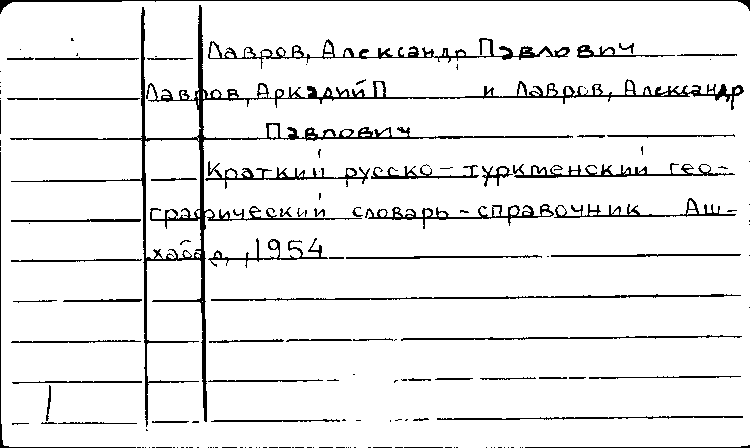 Лавров, Александр Павлович
Лавров, Аркадий П и Лавров, Александр
Павлович
Краткий русско-туркменский гео-
графический словарь-справочник. Аш-
хабад, 1954